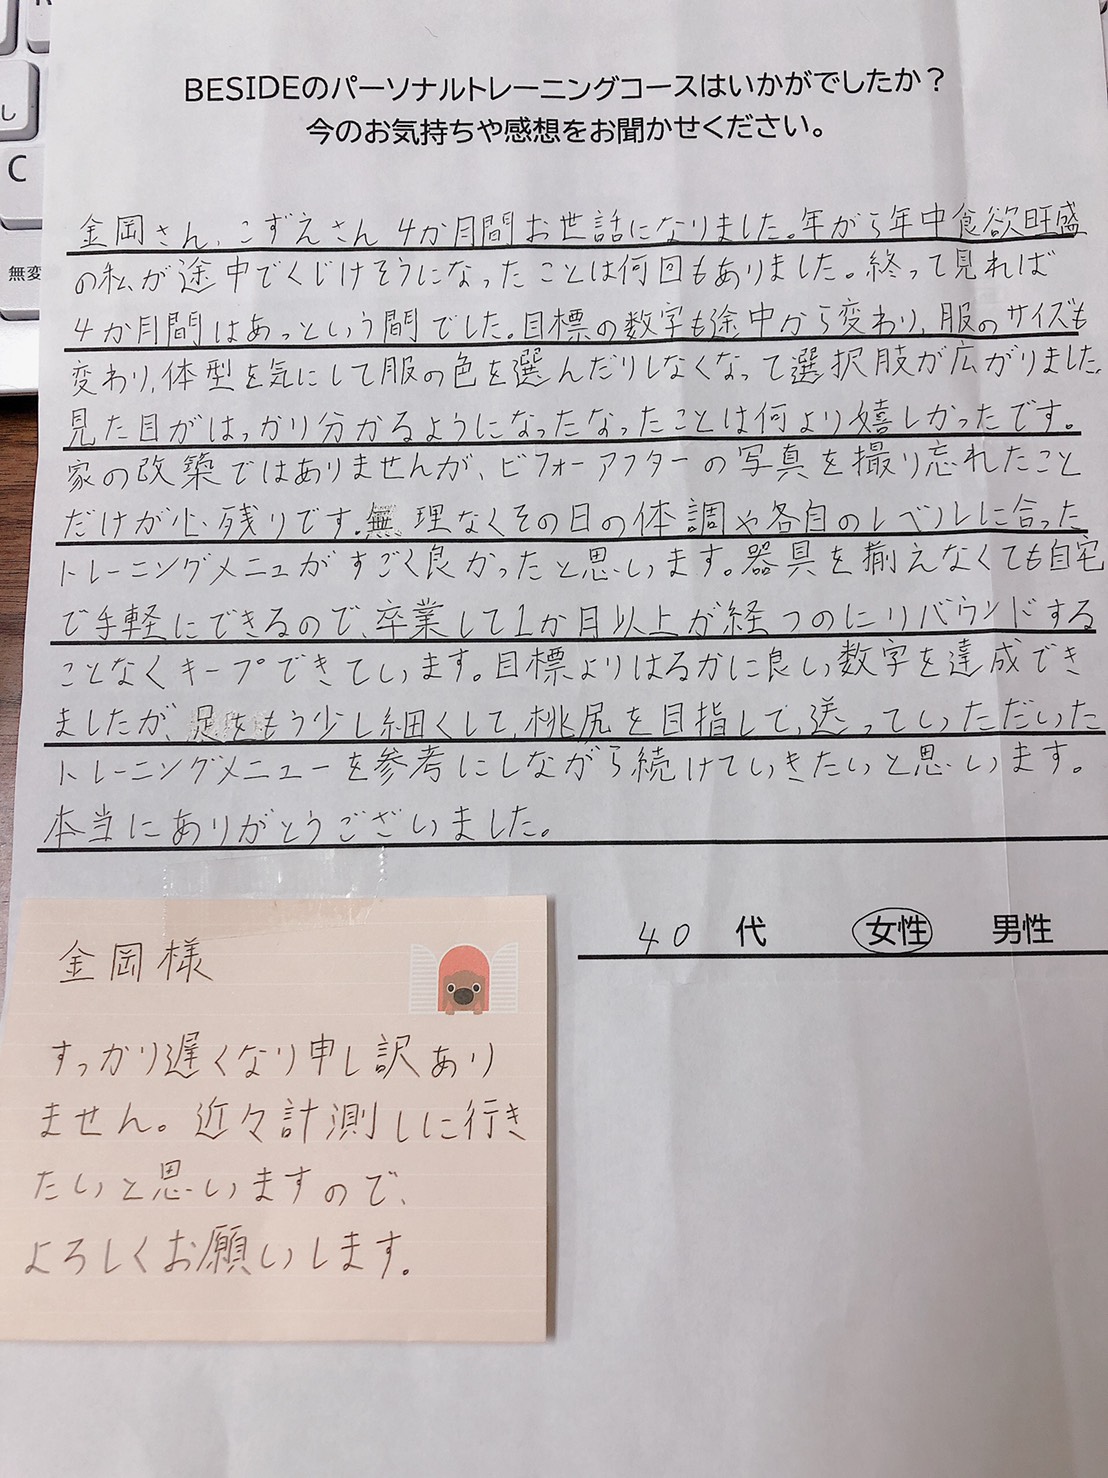 BESIDEのパーソナルトレーニングコースはいかがでしたか？
今のお気持ちや感想をお聞かせください。
金岡さん、こずえさん 4か月間お世話になりました。年がら年中食欲旺盛
の私が途中でくじけそうになったことは何回もありました。終って見れば
4か月間はあっという間でした。目標の数字も途中から変わり、服のサイズも
変わり、体型を気にして服の色を選んだりしなくなって選択肢が広がりました。
見た目がはっかり分かるようになったなったことは何より嬉しかったです。
家の改築ではありませんが、ビフォーアフターの写真を撮り忘れたこと
だけが心残りです。無理なくその日の体調や各自のレベルに合った
トレーニングメニュがすごく良かったと思います。器具を揃えなくても自宅
で手軽にできるので、卒業して1か月以上が経つのにリバウンドする
ことなくキープできています。目標よりはるかに良い数字を達成でき
ましたが、足をもう少し細くして、桃尻を目指して、送っていっただいた
トレーニングメニューを参考にしながら続けていきたいと思います。
本当にありがとうございました。
40 代 女性 男性
金岡様
すっかり遅くなり申し訳あり
ません。近々計測しに行き
たいと思いますので、
よろしくお願いします。
し
C
無変